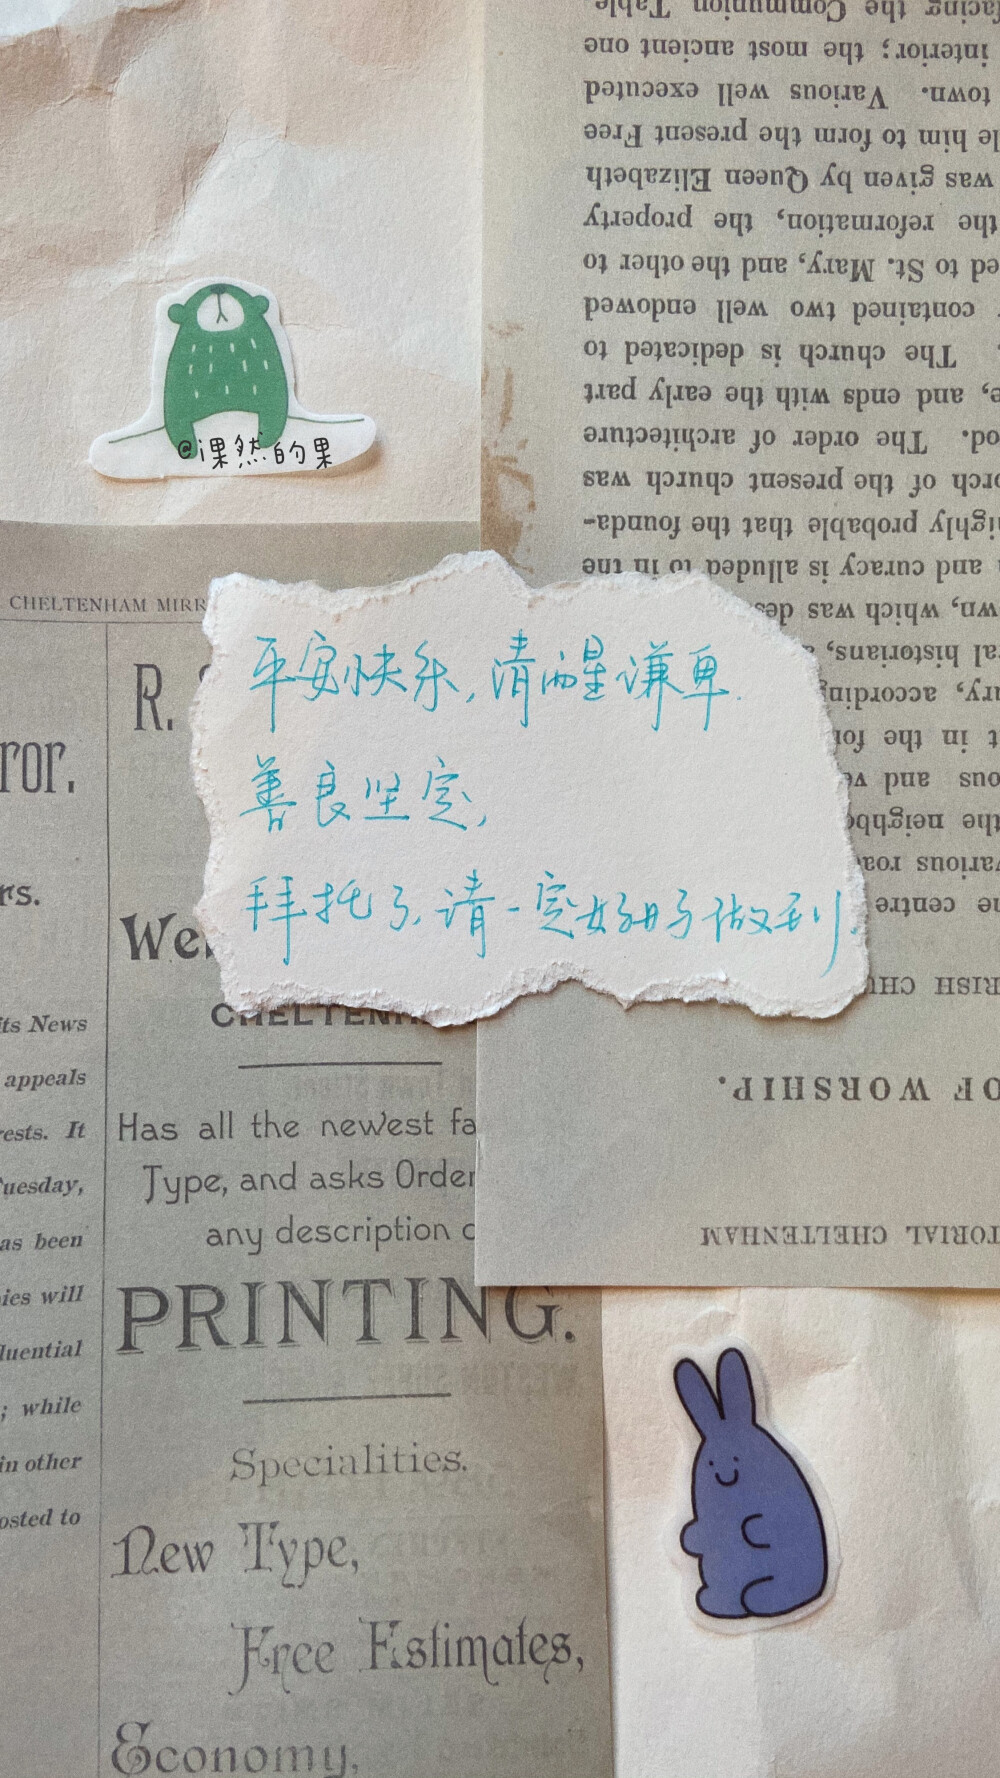 facing the Communion Table
interior; the most ancient one
town. Various well executed
le him to form the present Free
was given by Queen Elizabeth
the reformation, the property
ed to St. Mary, and the other to
contained two well endowed
The church is dedicated to
e, and ends with the early part
od. The order of architecture
orch of the present church was
ighly probable that the founda-
and curacy is alluded to in the
wn, which was des
ral historians,
ary, according
t in the for
ous and ve
the neighbo
various road
he centre
RISH CHU
OF WORSHIP.
TORIAL CHELTENHAM
@淉然的果
CHELTENHAM MIRR
平安快乐,清醒谦卑.
善良坚定,
拜托了,请一定好好做到.
ror.
rs.
its News
appeals
rests. It
Tuesday,
as been
pies will
fluential
; while
in other
osted to
R.
We
CHELTENH
Has all the newest fa
Type, and asks Order
any description o
PRINTING.
Specialities.
New Type,
Free Estimates,
Economy,